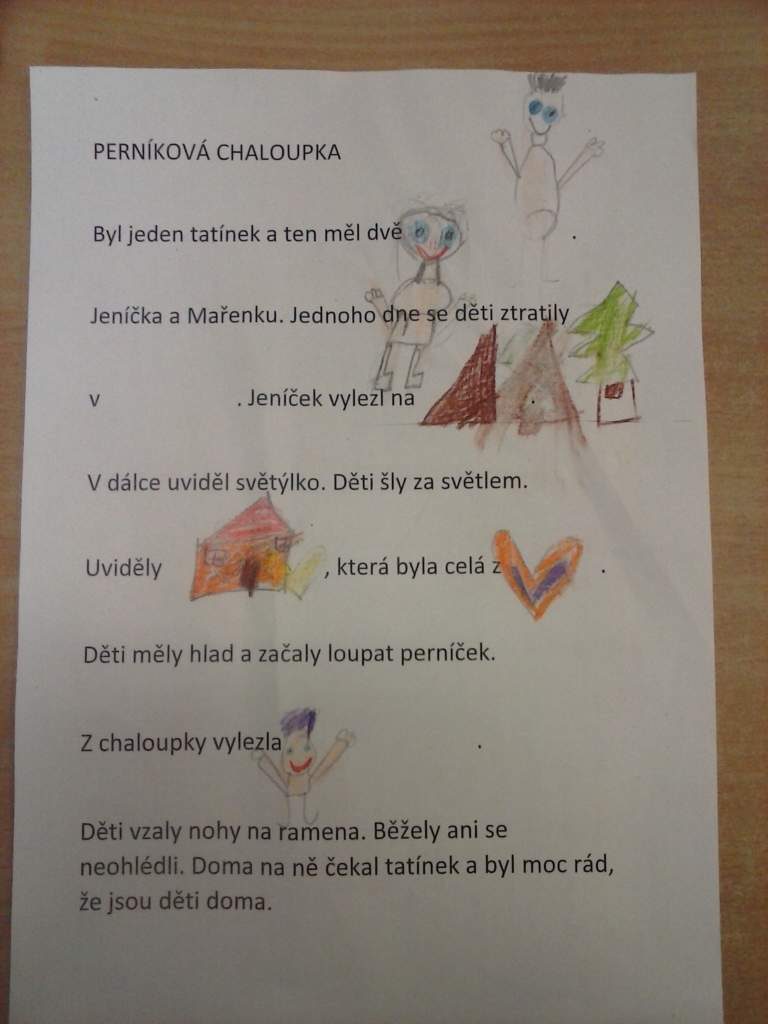 PERNÍKOVÁ CHALOUPKA
Byl jeden tatínek a ten měl dvě .
Jeníčka a Mařenku. Jednoho dne se děti ztratily
v . Jeníček vylezl na .
V dálce uviděl světýlko. Děti šly za světlem.
Uviděly , která byla celá z .
Děti měly hlad a začaly loupat perníček.
Z chaloupky vylezla .
Děti vzaly nohy na ramena. Běžely ani se
neohlédli. Doma na ně čekal tatínek a byl moc rád,
že jsou děti doma.